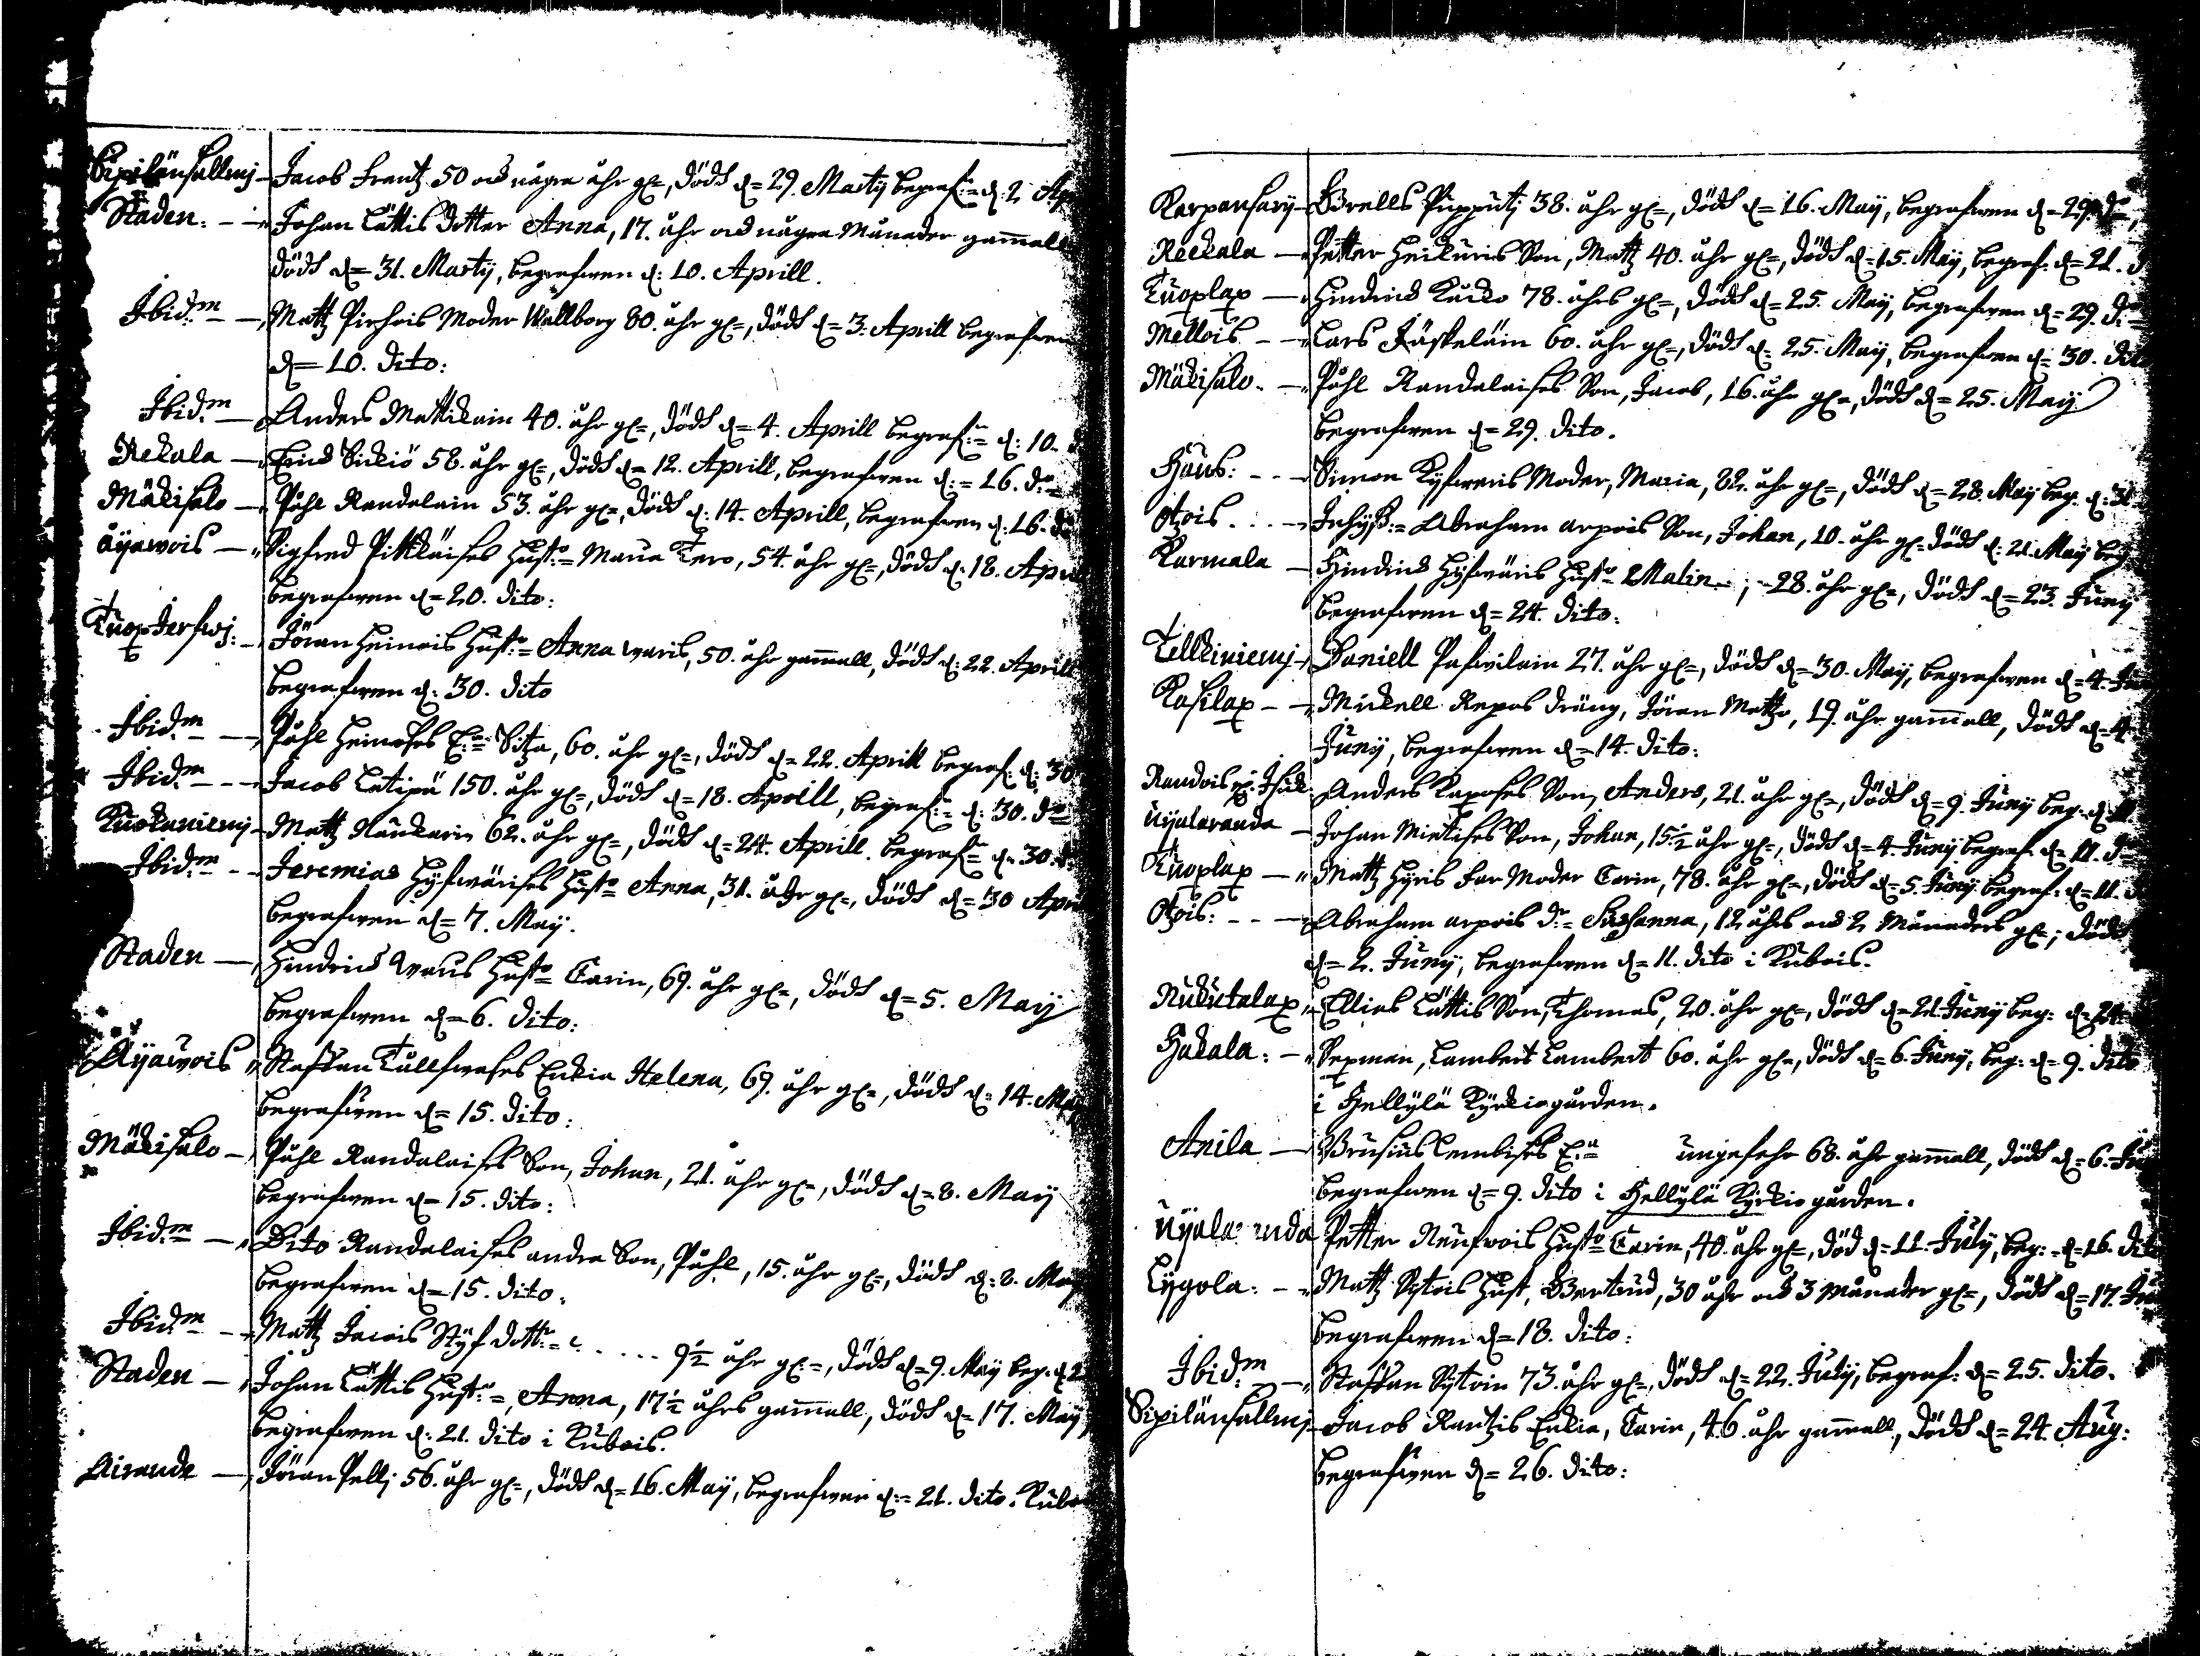 Sipilänsallmj - Jacob Frantz 50 och några åhr gl=, dödh d= 29. Martij begraf:n d. 2 Ap
Staden: - Johan Lättis dotter Anna, 17. åhr och några Månader gamall
dödh d= 31. Martij, begrafwen d: 10. Aprill.
Ibid:m - Mattz Pirhois Moder Wallborg 80. åhr gl=, dödh d= 3. Aprill begrafwen
d= 10. dito:
Ibid:m - Anders Mattikain 40. åhr gl=, dödh d= 4. Aprill begraf:n d: 10.
Rekala - Erich Sickiö 58. åhr gl=, dödh d= 12. Aprill, begrafwen d:= 16. d:o
Mäkisalo - Påhl Randalain 53. åhr gl=, dödh d: 14. Aprill, begrafwen d: 16. do
äyäwois - Sigfred Pitkläises Hust:o Maria Tero, 54. åhr gl=, dödh d: 18. Apri
begrafwen d= 20. dito:
Kuoxjerfwj: - Jöran Heinois Hust:o= Anna waris, 50. åhr gamall, dödh d: 22. Aprill
begrafwen d: 30. dito
Ibid:m - Påhl Heinoses E:a Sitza, 60. åhr gl=, dödh d= 22. Aprill begraf: d: 30
Ibid:m - Jacob Latipä 150. åhr gl=, dödh d= 18. Aprill, begraf:n d: 30. do
Kuokaniemj - Mattz Naukarin 62. åhr gl=, dödh d= 24. Aprill. begraf:n d= 30.
Ibid:m - Jeremias Hyfwärises Hust:o Anna, 31. åhr gl=, dödh d= 30 Apri
begrafwen d= 7. May.
Staden - Hindrich Waus Hust:o Carin, 69. åhr gl=, dödh d= 5. Maij
begrafwen d= 6. dito:
Äyäwois Staffan Tullfwases Enkia Helena, 69. åhr gl=, dödh d= 14. May
begrafwen d= 15. dito:
Mäkisalo - Påhl Randalaises Son, Johan, 21. åhr gl=, dödh d= 8. Maij
begrafwen d= 15. dito:
Ibid:m - Dito Randalaises andra Son, Påhl, 15. åhr gl=, dödh d: 8. May
begrafwen d= 15. dito.
Ibid:m - Mattz Jacois Styf dott:r= . . . . . 9½ åhr gl:=, dödh d= 9. May beg. d 2
Staden - Johan Lättis Hust:o=, Anna, 17½ åhrs gamall, dödh d= 17. May
begrafwen d: 21. dito i Kubois.
Airanda - Jöran Pellj 56. åhr gl=, dödh d= 16. Maij, begrafwen d:= 21. dito. Kubo
Karpansary - Brells Pupputj 38. åhr gl=, dödh d= 16. May, begrafwen d= 29. do
Reckala - Petter Heikuris Son, Mattz 40. åhr gl=, dödh d= 15. May, begraf. d= 21.
Kuoplax - Hindrich Kucko 78. åhrs gl=, dödh d= 25. May, begrafwen d= 29. d:o
Mellois - Lars Jäskeläin 60. åhr gl=, dödh d= 25. May, begrafwen d= 30. dit
Mäkisalo. - Påhl Randalaises Son, Jacob, 16. åhr gl=, dödh d= 25. May
begrafwen d= 29. dito.
Haus: - Simon Kyfweris Moder, Maria, 82. åhr gl=, dödh d= 28. May beg. d: 31
Otzois. - Inhyß:= Abraham arpois Son, Johan, 10. åhr gl= dödh d: 21 May beg
Karmala - Hindrich Hyfwäris Hust:o Malin, 28. åhr gl=, dödh d= 23. Juny
begrafwen d= 24. dito:
Telkiniemj - Daniell Pafwilain 27. åhr gl=, dödh d= 30. May, begrafwen d= 4. Jun
Kosilax - Mickell Repos dräng, Jöran Mattzo, 19. åhr gamall, dödh d= 4
Juny, begrafwen d= 14. dito:
Anders Kaxoses Son, Anders, 21. åhr gl=, dödh d= 9. Juny beg. d 11
Uyalaranda - Johan Mietises Son, Johan, 15½ åhr gl=, dödh d= 4. Juny begraf d= 11. do
Kuoplax - Mattz Hyris far Moder Carin, 78. åhr gl=, dödh d= 5. Juny begraf: d= 11.
Otzois: - Abraham arpois d:r= Susanna, 12 åhrs och 2 Månaders gl=, dödh
d= 2. Juny, begrafwen d= 11. dito i Kubois.
Kukutalax, Ellias Lättis Son, Thomas, 20. åhr gl=, dödh d= 21. Juny beg: d= 24
Hakala: - Sexman, Lambert Lambert 60. åhr gl=, dödh d= 6. Juny, beg: d= 9. dito
i Hellylä Kyrkiogården.
Anila - Brusius Lembises E:a ungefehr 68. åhr gamall, dödh d= 6. Ju
begrafwen d= 9. dito i Hellylä Kyrkio gården.
Uyala nda Petter Neufwois Hust:o Carin, 40. åhr gl=, död d= 11. July, beg: d= 16. dito
Lygola: - Mattz Sytois Hust, Bertrud, 30 åhr och 3 Månader gl=, dödh d= 17. Ju
begrafwen d= 18. dito:
Ibid:m - Staffan Sytoin 73. åhr gl=, dödh d= 22. July, begraf: d= 25. dito.
Sipilänsallmj - Jacob Rantzis Enkia, Carin, 46. åhr gamall, dödh d= 24. Aug:
begrafwen d= 26. dito: